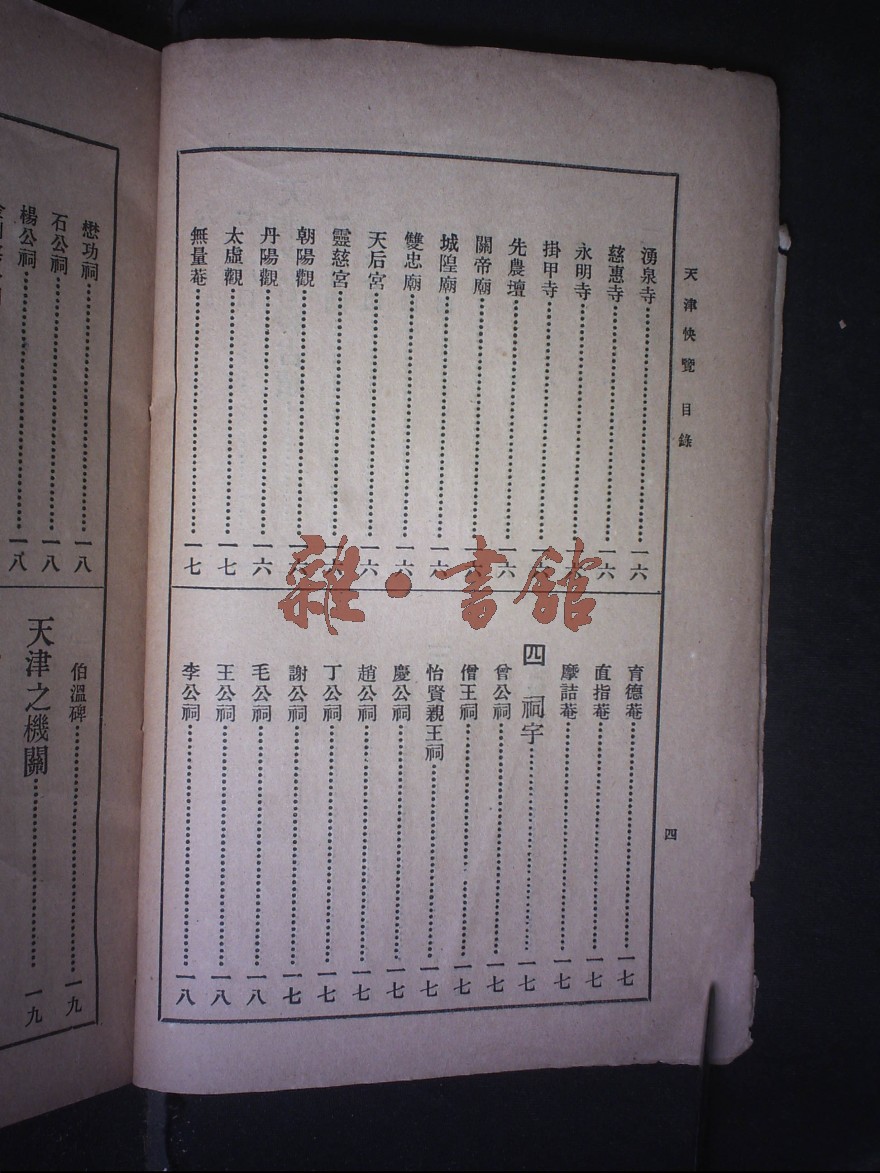 天津快覽 目錄
四
湧泉寺…………一六
慈惠寺…………一六
永明寺…………一六
掛甲寺…………一六
先農壇…………一六
關帝廟…………一六
城隍廟…………一六
雙忠廟…………一六
天后宮…………一六
靈慈宮…………一六
朝陽觀…………一六
丹陽觀…………一六
太虛觀…………一七
無量菴…………一七
育德菴…………一七
直指菴…………一七
摩詰菴…………一七
四 祠宇…………一七
曾公祠…………一七
僧王祠…………一七
怡賢親王祠…………一七
慶公祠…………一七
趙公祠…………一七
丁公祠…………一七
謝公祠…………一七
毛公祠…………一八
王公祠…………一八
李公祠…………一八
懋功祠…………一八
石公祠…………一八
楊公祠…………一八
伯溫碑…………一九
天津之機關…………一九
雜·書館